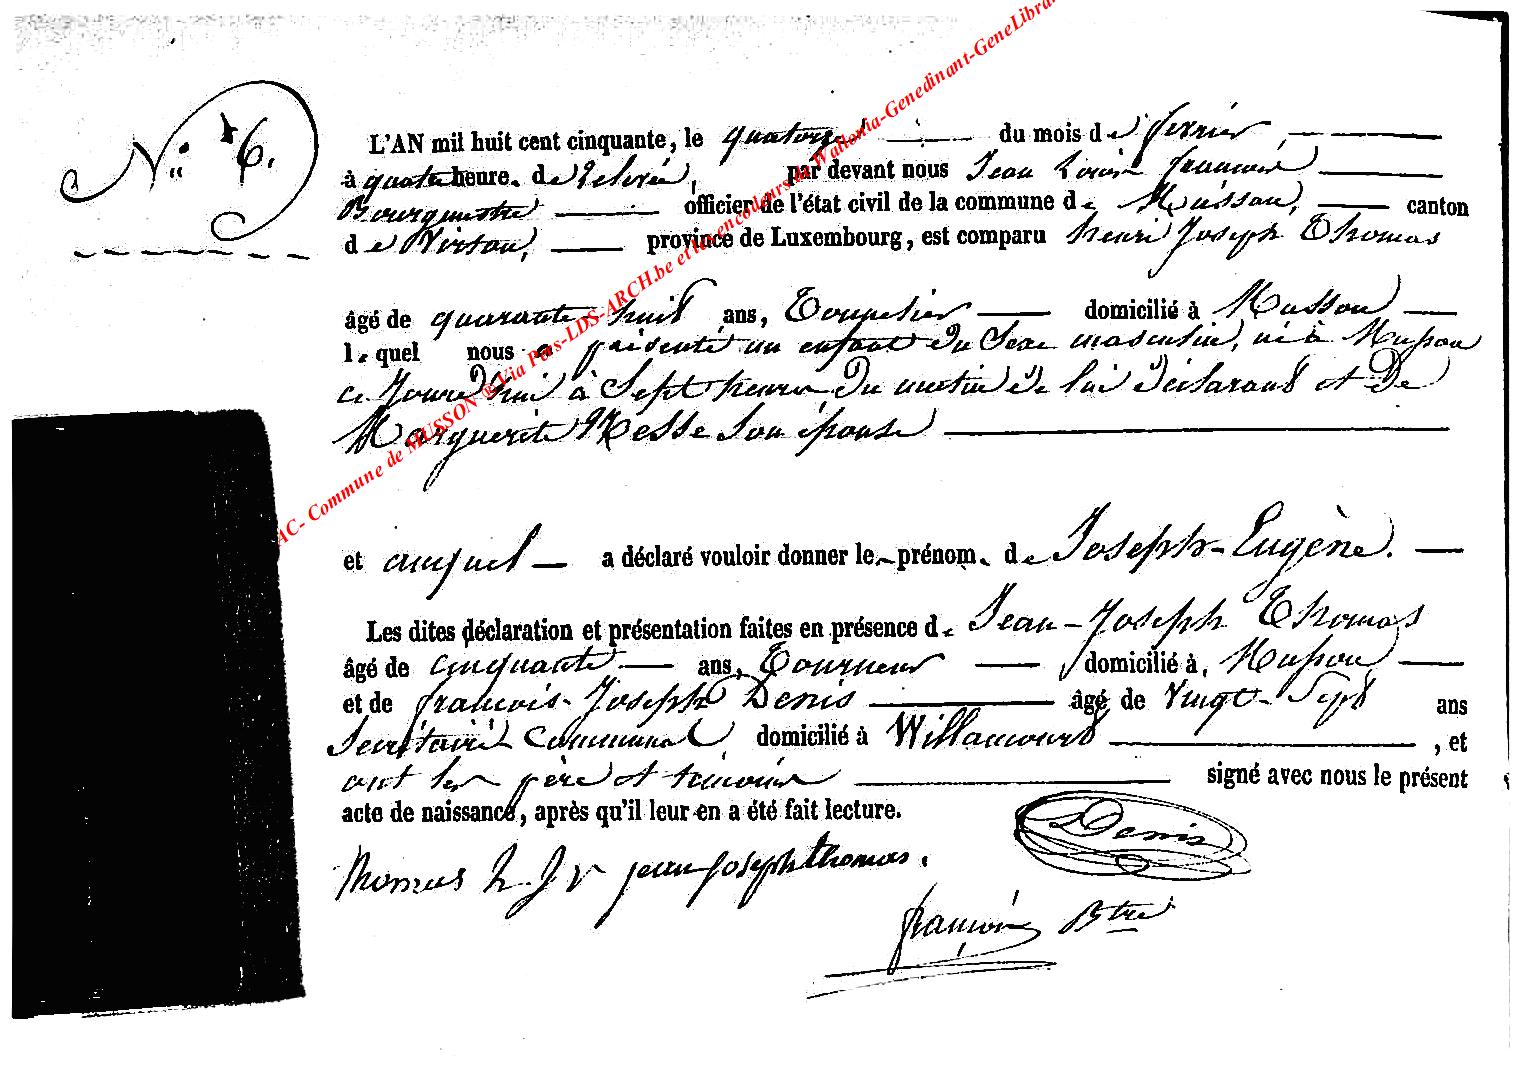 N° 6.
L'AN mil huit cent cinquante, le quatorze du mois de février,
à quatre heure. de relevée, par devant nous Jean Louis francois
Bourgmestre officier de l'état civil de la commune de Musson, canton
de Virton, province de Luxembourg, est comparu henri Joseph Thomas
âgé de quarante-huit ans, domicilié à Musson
lequel nous a présenté un enfant du sexe masculin, né à Musson
ce jourd'hui à Sept heures du matin de lui déclarant et De
Marguerite Messe Son épouse
et auquel a déclaré vouloir donner le prénom de Joseph-Eugène.
Les dites déclaration et présentation faites en présence de Jean-Joseph Thomas
âgé de cinquante ans, Tourneur domicilié à Musson
et de francois-Joseph Denis âgé de Vingt-Sept ans
Secrétaire Communal, domicilié à Willancourt, et
ont les père et témoins signé avec nous le présent
acte de naissance, après qu'il leur en a été fait lecture.
Denis
Thomas h. J jean joseph thomas.
francois Btre
AC- Commune de MUSSON ® Via Pars-LDS-ARCH.be et les encodeurs de Wallonia-Genedinant-GeneLibra